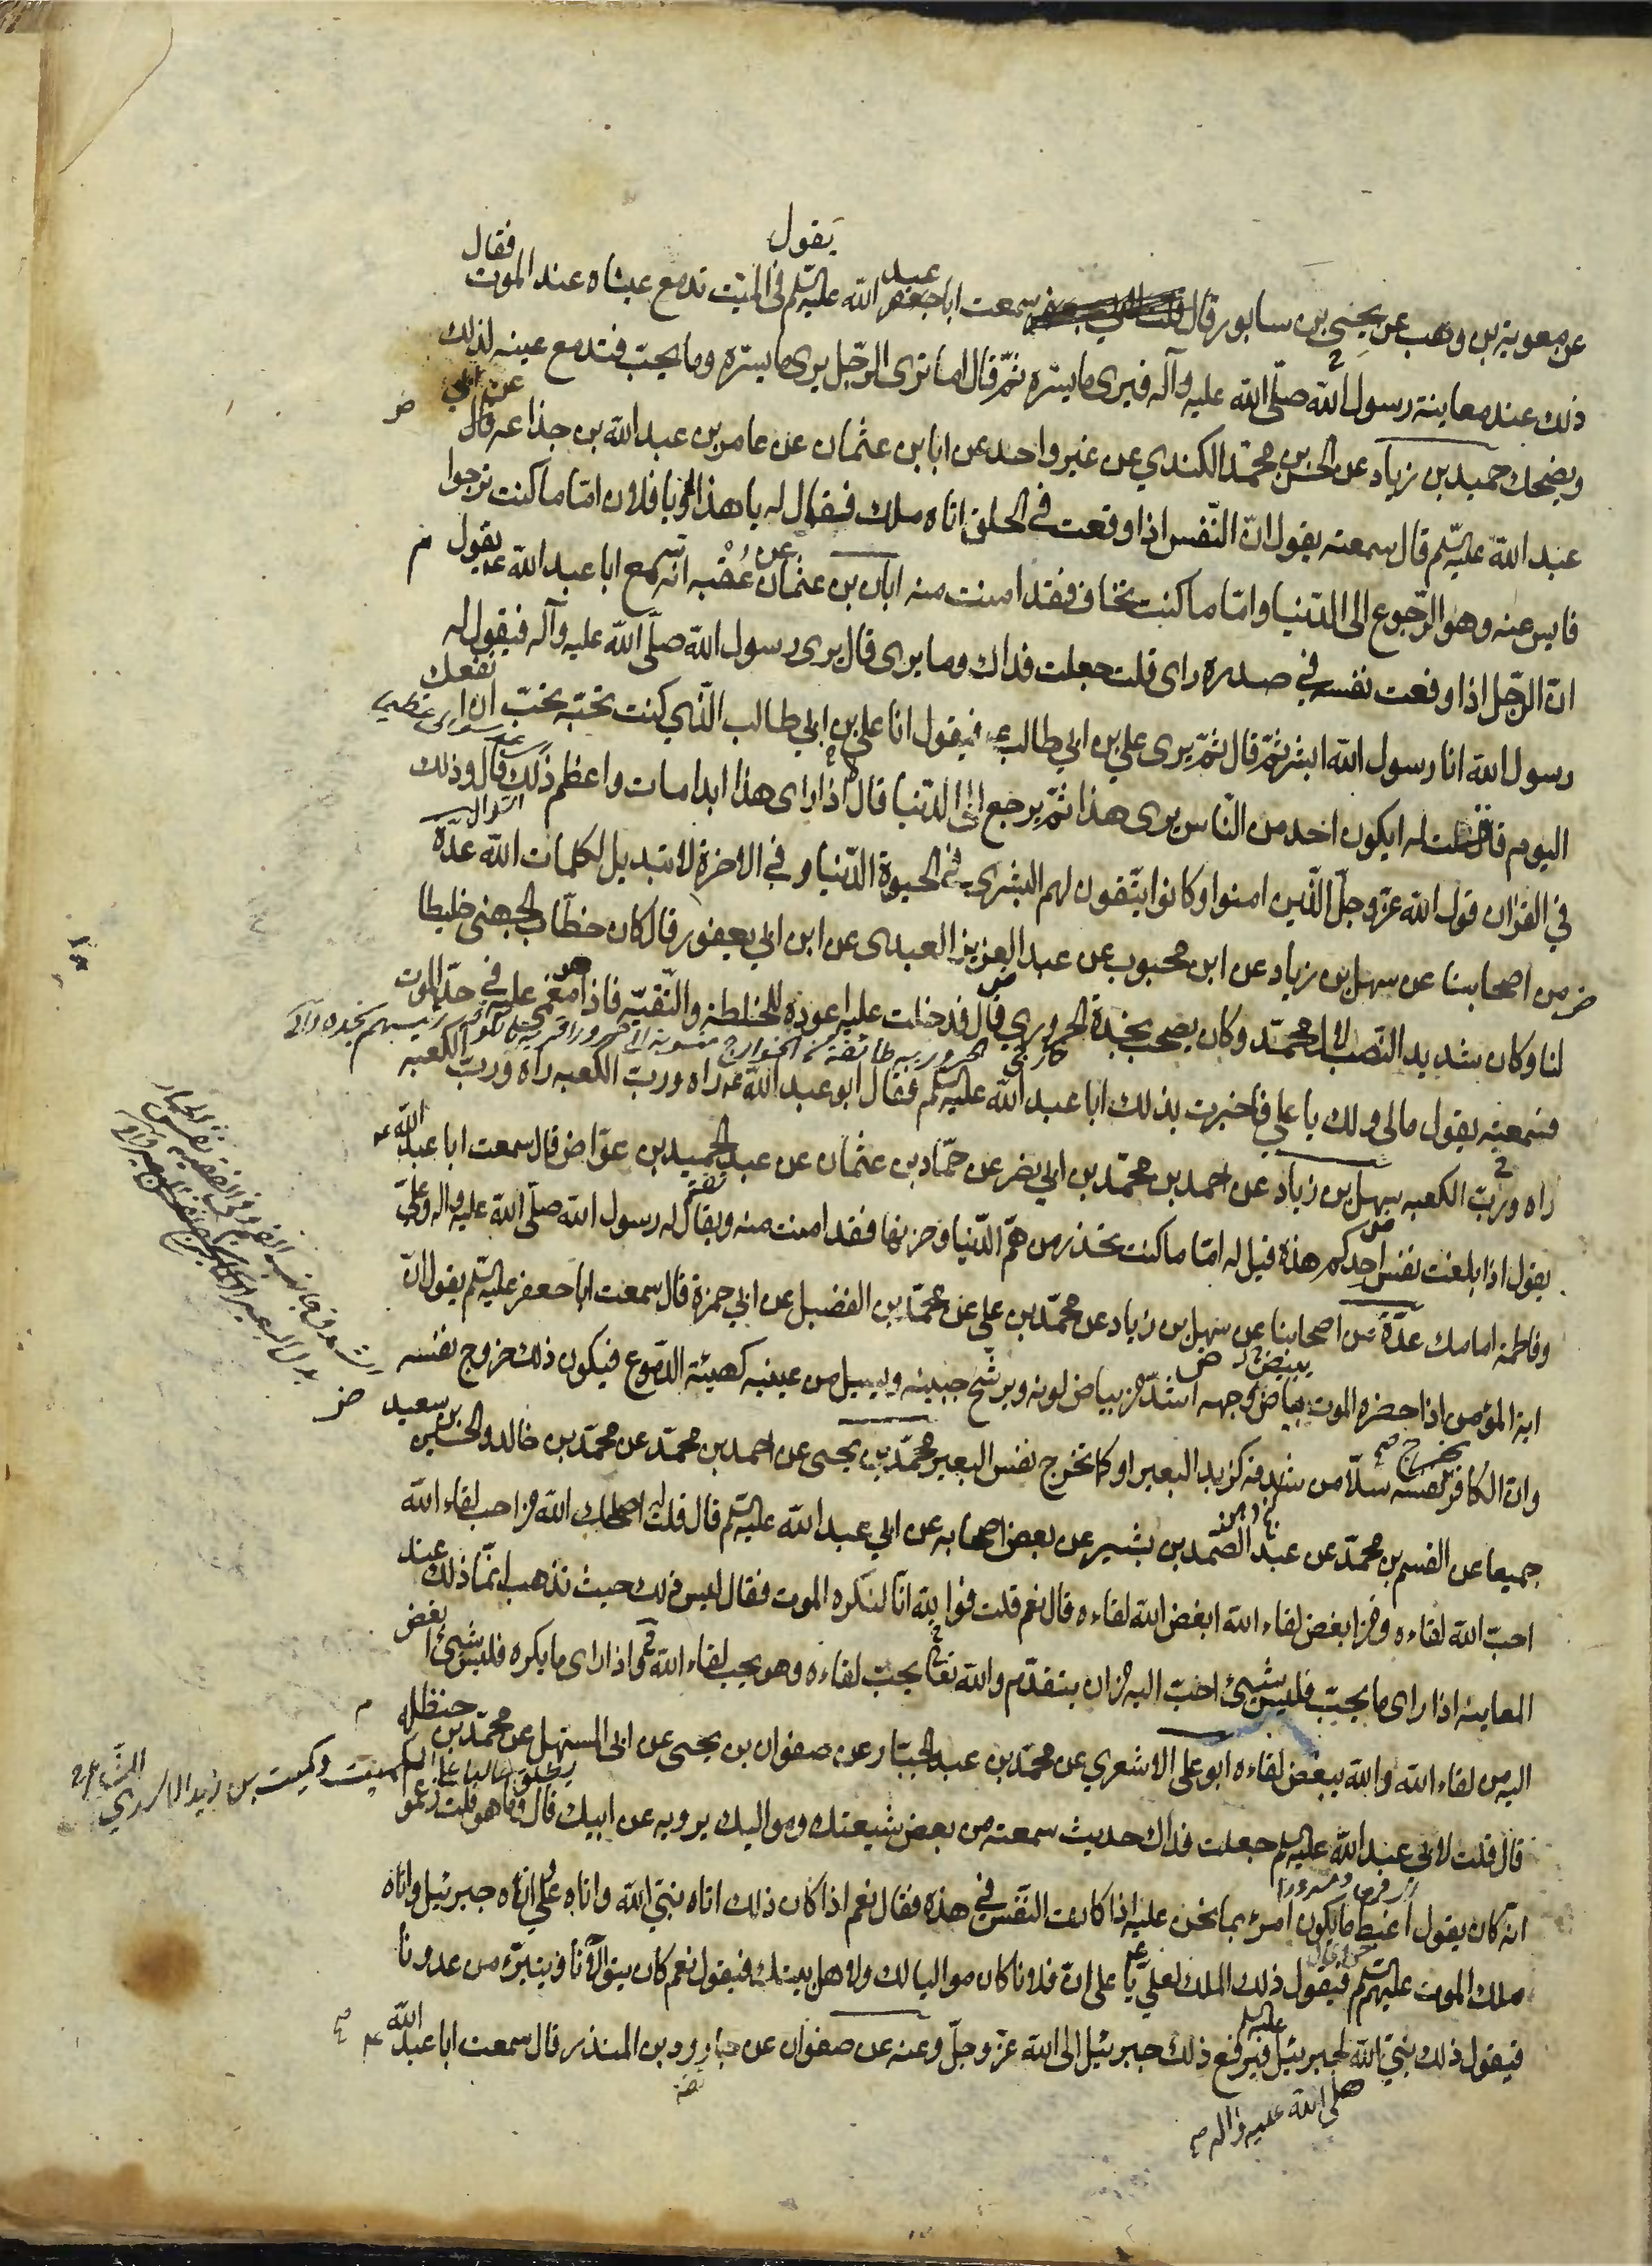 يقول
عن معوية بن وهب عن يحيى بن سابور قال سمعت ابا عبد الله عليه السلم في الميت تدمع عيناه عند الموت فقال
ذلك عند معاينة رسول الله صلّى الله عليه وآله فيرى ما يسره ثمّ قال اما ترى الرّجل يرى ما يسرّه وما يحبّ فتدمع عينه لذلك
ويضحك حميد بن زياد عن الحسن بن محمّد الكندي عن غير واحد عن ابان بن عثمان عن عامر بن عبد الله بن جذاعه قال عن ابي
عبد الله عليه السلم قال سمعته يقول انّ النّفس اذا وقعت في الحلق اتاه ملك فيقال له يا هذا او يا فلان امّا ما كنت ترجوا
فايس عنه وهو الرّجوع الى الدّنيا وامّا ما كنت تخاف فقد امنت منه ابان بن عثمان عن عُقبه انّه سمع ابا عبد الله عه يقول
انّ الرّجل اذا وقعت نفسه في صدره راى قلت جعلت فداك وما يرى قال يرى رسول الله صلّى الله عليه وآله فيقول له
رسول الله انا رسول الله ابشر ثمّ قال ثمّ يرى علي بن ابي طالب عه فيقول انا علي بن ابي طالب الّذي كنت تحبّه تحبّ ان انفعك
اليوم قال قلت له ايكون احد من النّاس يرى هذا ثمّ يرجع الى الدّنيا قال لا اذا راى هذا ابدا مات واعظم ذلك قال وذلك
في القرآن قول الله عزّ وجلّ الّذين امنوا وكانوا يتّقون لهم البشرى في الحيوة الدّنيا وفي الاخرة لا تبديل لكلمات الله عدّة
من اصحابنا عن سهل بن زياد عن ابن محبوب عن عبد العزيز العبدى عن ابن ابي يعفور قال كان خطّاب الجهنى خليطا
لنا وكان شديد النّصب لآل محمّد وكان يصحب نجدة الحروري قال فدخلت عليه اعوده للخلطة والتّقيّه فاذا هو مغمى عليه في حدّ الموت
فسمعته يقول مالى ولك يا علي فاخبرت بذلك ابا عبد الله عليه السلم فقال ابو عبد الله عه راه وربّ الكعبه راه وربّ الكعبه
راه وربّ الكعبه سهل بن زياد عن احمد بن محمّد بن ابي نصر عن حمّاد بن عثمان عن عبد الحميد بن عوّاض قال سمعت ابا عبد الله عه
يقول اذا بلغت نفس احدكم هذه قيل له امّا ما كنت تحذر من همّ الدّنيا وحزنها فقد امنت منه ويقال له رسول الله صلّى الله عليه واله وعليّ
وفاطمة امامك عدّة من اصحابنا عن سهل بن زياد عن محمّد بن علي عن محمّد بن الفضيل عن ابي حمزة قال سمعت ابا جعفر عليه السلم يقول انّ
اية المؤمن اذا حضره الموت بياض وجهه اشدّ من بياض لونه ويرشّح جبينه ويسيل من عينيه كهيئة الدّموع فيكون ذلك خروج نفسه
وان الكافر تخرج نفسه سلّا من شدقه كزبد البعير او كما تخرج نفس البعير محمّد بن يحيى عن احمد بن محمّد عن محمّد بن خالد والحسين بن سعيد
جميعا عن القسم بن محمّد عن عبد الصّمد بن بشير عن بعض اصحابه عن ابي عبد الله عليه السلم قال قلت اصلحك الله من احب لقاء الله
احبّ الله لقاءه ومن ابغض لقاء الله ابغض الله لقاءه قال نعم قلت فوالله انّا لنكره الموت فقال ليس ذلك حيث تذهب انّما ذلك عند
المعاينة اذا راى ما يحبّ فليس شيئ احبّ اليه من ان يتقدّم والله تعالى يحبّ لقاءه وهو يحبّ لقاء الله واذا راى ما يكره فليس شيئ ابغض
اليه من لقاء الله والله يبغض لقاءه ابو على الاشعري عن محمّد بن عبد الجبّار عن صفوان بن يحيى عن ابى المستهل عن محمّد بن حنظله
قال قلت لابى عبد الله عليه السلم جعلت فداك حديث سمعته من بعض شيعتك ومواليك يرويه عن ابيك قال وما هو قلت زعموا
انّه كان يقول اغبط ما يكون امرئ بما نحن عليه اذا كانت النّفس في هذه فقال نعم اذا كان ذلك اتاه نبيّ الله واتاه عليّ واتاه جبرئيل واتاه
ملك الموت عليهم السلم فيقول ذلك الملك لعليّ يا علي انّ فلانا كان مواليا لك ولاهل بيتك فيقول نعم كان يتوالانا ويتبرّء من عدوّنا
فيقول ذلك نبيّ الله لجبرئيل فيرفع ذلك جبرئيل الى الله عزّ وجلّ وعنه عن صفوان عن جارود بن المنذر قال سمعت ابا عبد الله عه
صلى الله عليه واله